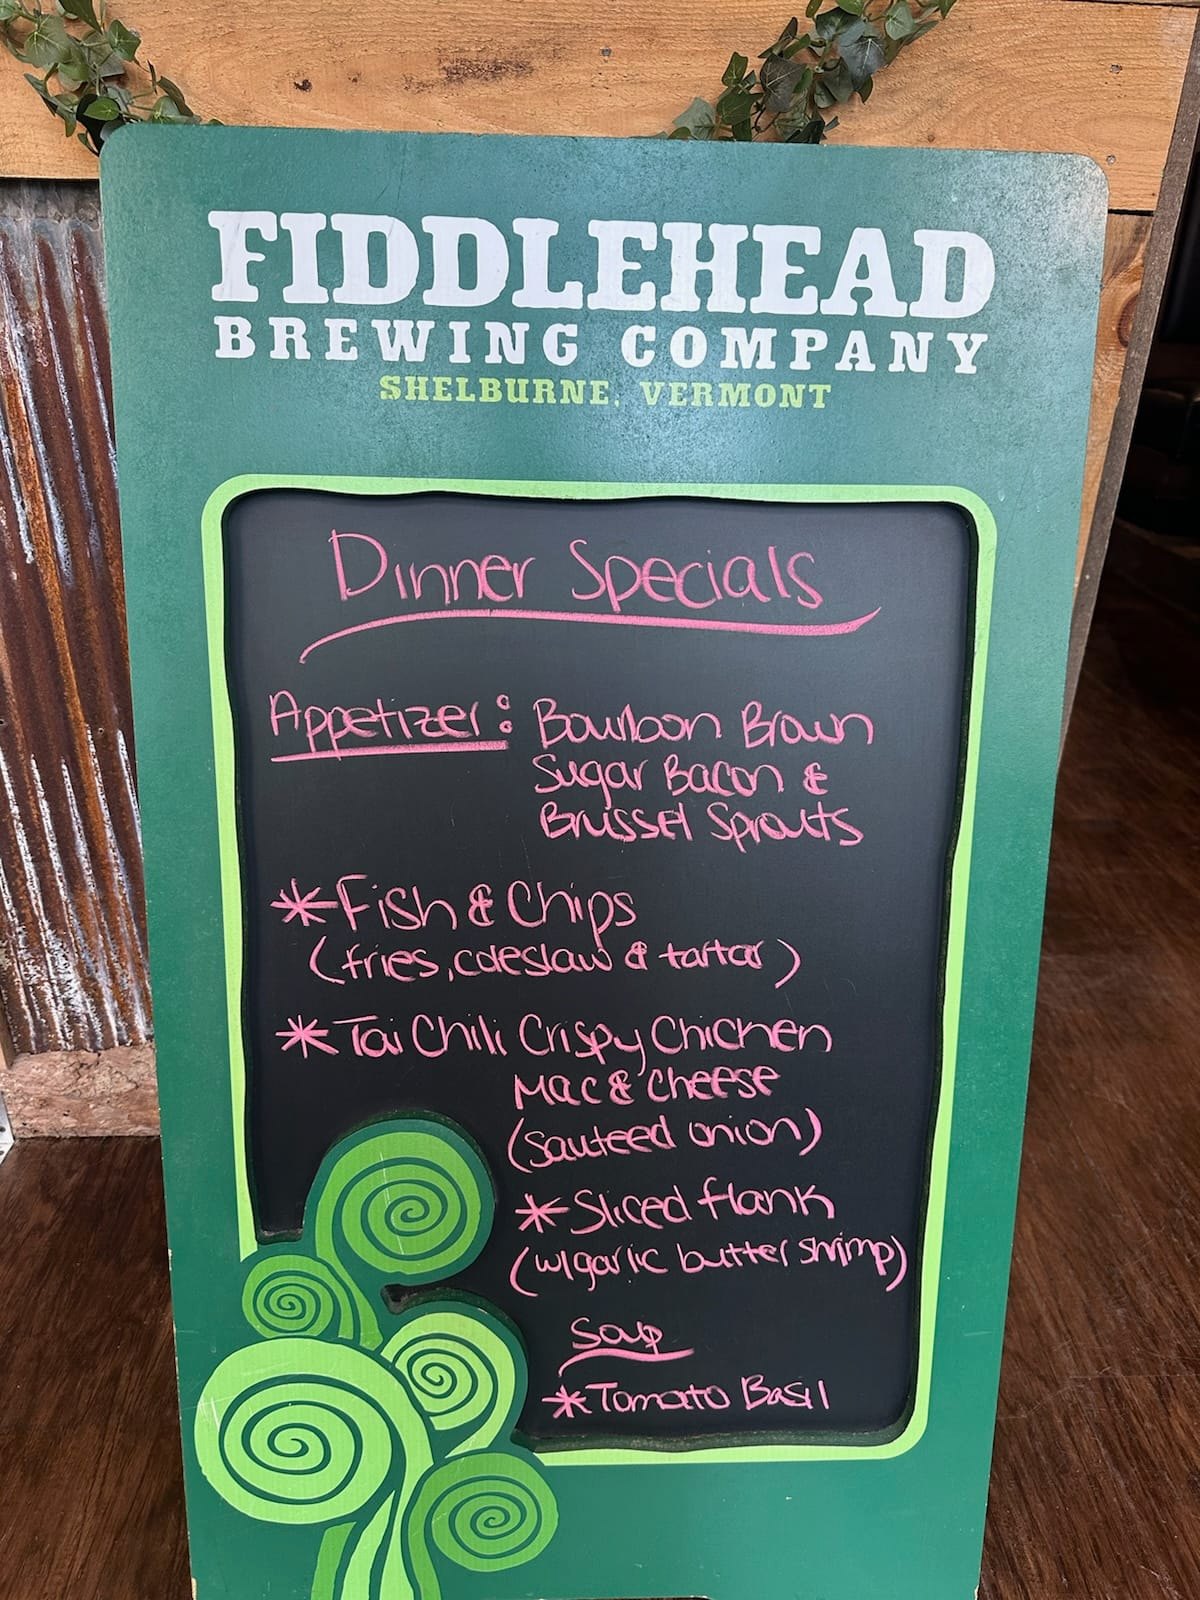 FIDDLEHEAD
BREWING COMPANY
SHELBURNE, VERMONT
Dinner Specials
Appetizer: Bourbon Brown
Sugar Bacon &
Brussel Sprouts
*Fish & Chips
(fries, coleslaw & tartar)
*Tai Chili Crispy Chicken
Mac & Cheese
(Sauteed onion)
*Sliced flank
(w/garlic butter shrimp)
Soup
*Tomato Basil